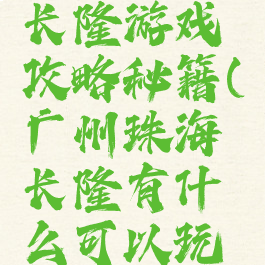 长隆游戏
攻略秘籍(
广州珠海
长隆有什
么可以玩